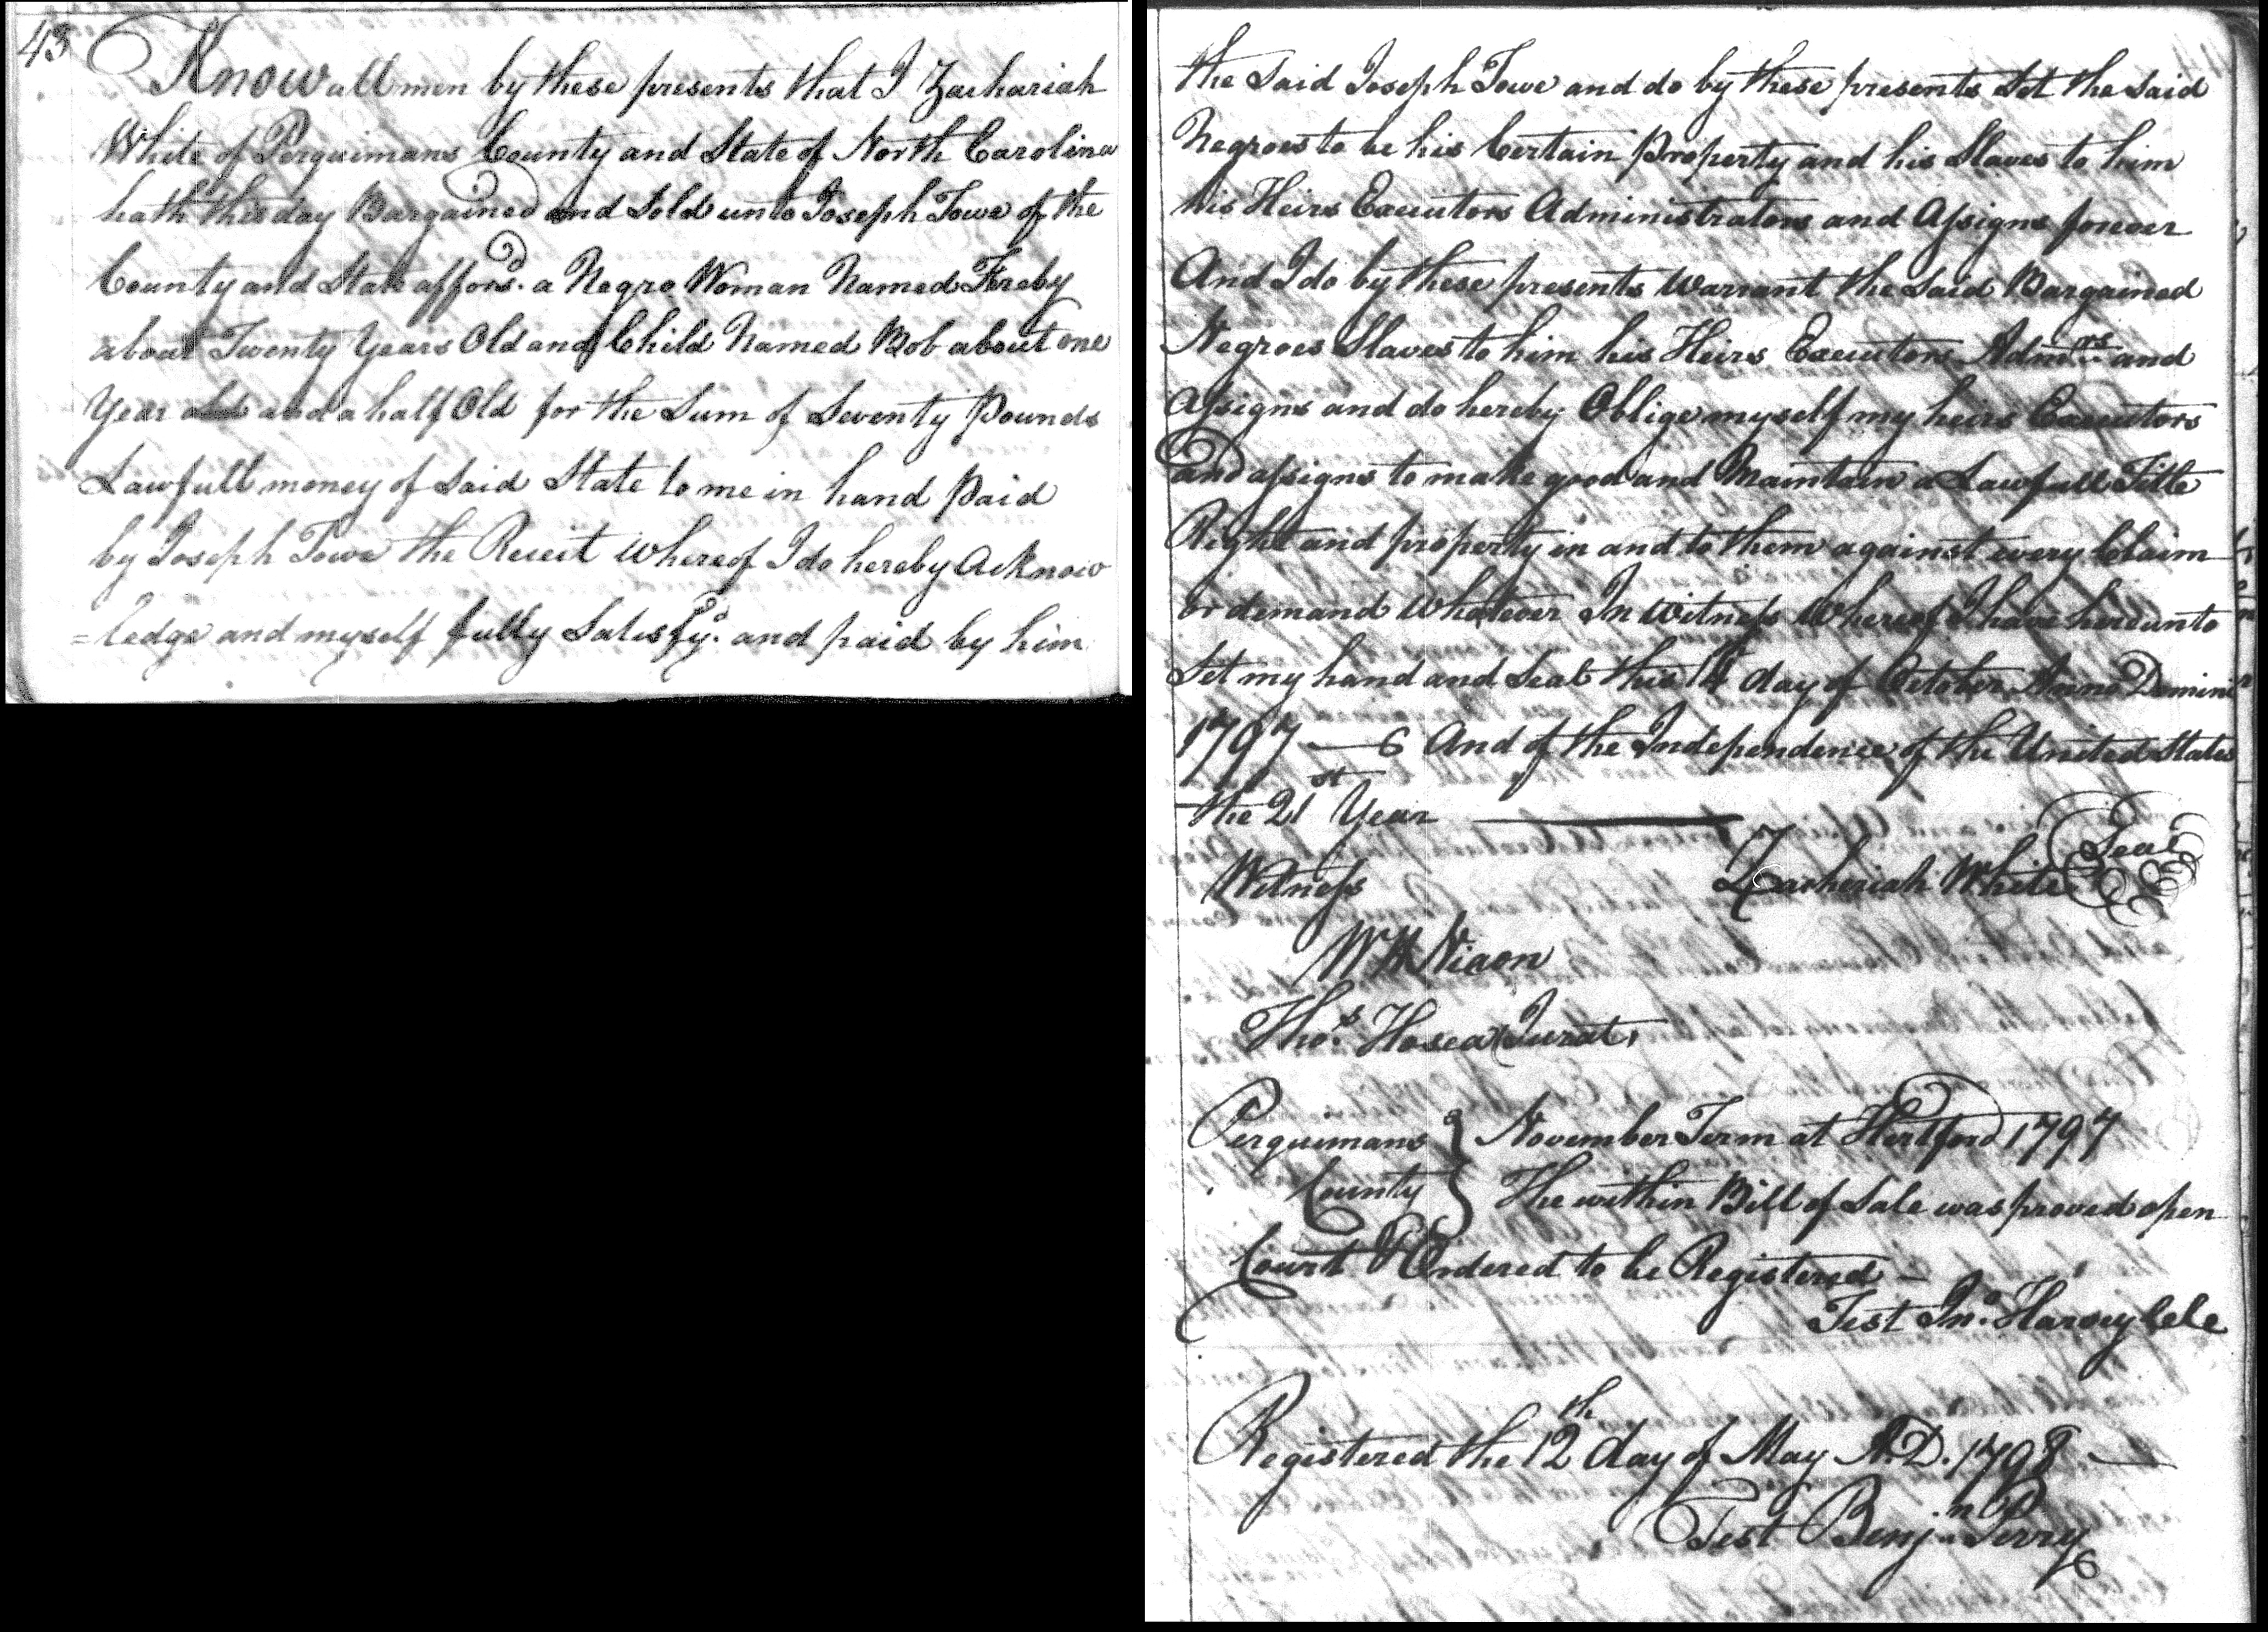 43
Know all men by these presents that I Zachariah
White of Perquimans County and State of North Carolina
hath this day Bargained and Sold unto Joseph Towe of the
County and State affors.d a Negro Woman Named Fereby
about Twenty Years Old and Child Named Bob about one
Year old and a half Old for the Sum of Seventy Pounds
Lawfull money of Said State to me in hand Paid
by Joseph Towe the Receit whereof I do hereby Acknow
=ledge and myself fully Satisfy.d and paid by him
the Said Joseph Towe and do by these presents Set the Said
Negroes to be his Certain Property and his Slaves to him
his Heirs Executors Administrators and Assigns forever
And I do by these presents Warrant the Said Bargained
Negroes Slaves to him his Heirs Executors Admrs and
Assigns and do hereby Oblige myself my heirs Executors
and assigns to make good and Maintain a Lawfull Title
Right and property in and to them against every Claim
or demand whatever In Witness Whereof I have hereunto
Set my hand and Seal this 14 day of October Anno Domini
1797 — 6 And of the Independence of the United States
the 21st Year
Seal
Witness Zacheriah White
Wm Nixon
Thos. Hosea Jurat,
Perquimans } November Term at Hertford 1797
County } The within Bill of Sale was proved open
Court & Ordered to be Registered —
Test Jno. Harvey Clk
Registered the 12th day of May A.D. 1798 —
Test Benjn. Perry